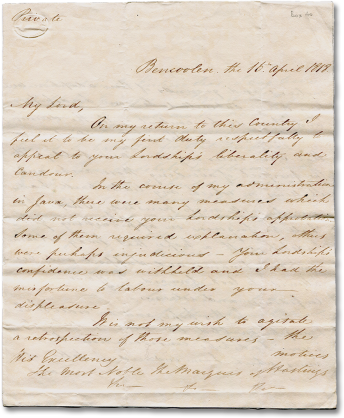 Private
Bencoolen the 15 April 1818
My Lord,
On my return to this Country I
feel it to be my first duty respectfully to
appeal to your Lordship's liberality and
Candour.
In the course of my administration
in Java, there were many measures which
did not receive your Lordship's approbation
Some of them required explanation, others
were perhaps injudicious - Your Lordship's
confidence was withheld and I had the
misfortune to labour under your
displeasure
It is not my wish to agitate
a retrospection of those measures - the
motives
His Excellency
The Most Noble The Marquis of Hastings